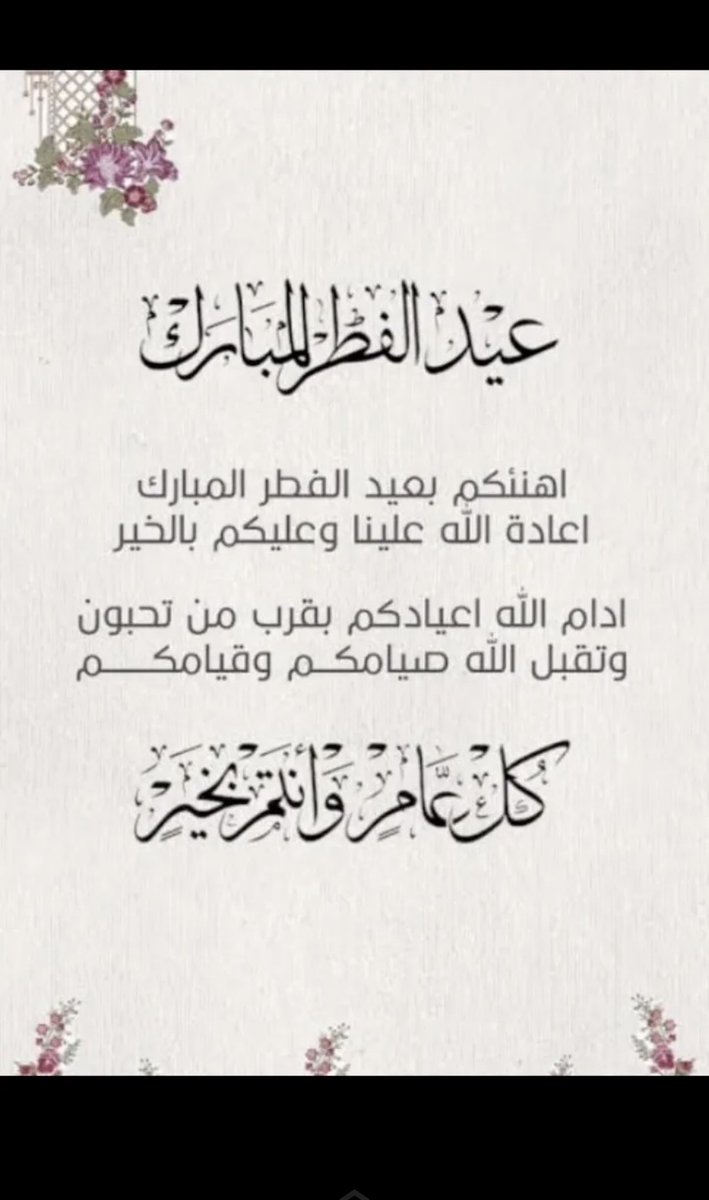 عيد الفطر المبارك
اهنئكم بعيد الفطر المبارك
اعادة الله علينا وعليكم بالخير
ادام الله اعيادكم بقرب من تحبون
وتقبل الله صيامكم وقيامكم
كُل عَامٍ وَأنتم بِخَيرٍ